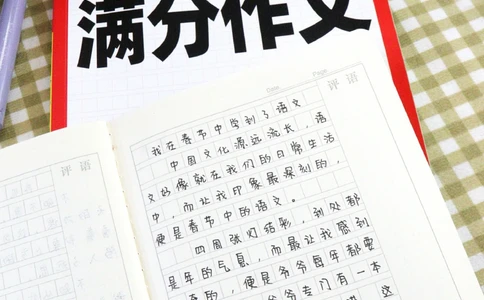 满分作文
Date
Page
评语
评语
我在春节中学到了语文
中国文化源远流长，语
文好像就在我们的日常生活
中，而让我印象最深刻的，
便是春节中的语文。
四周张灯结彩，到处都
是年的气息，而最让我感到
的，便是爷爷每年都要
爷爷专门有一本
这